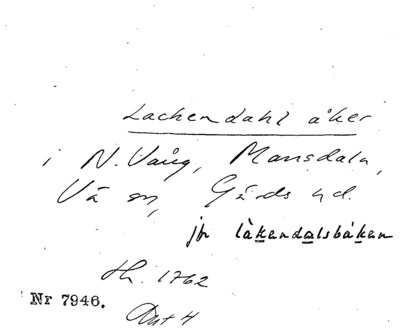 Lackendahl åker
i N. Vång, Mansdala,
Vä sn, Gärds hd.
jfr låkendalsbåken
Hh. 1762
Nr 7946.
Akt 4